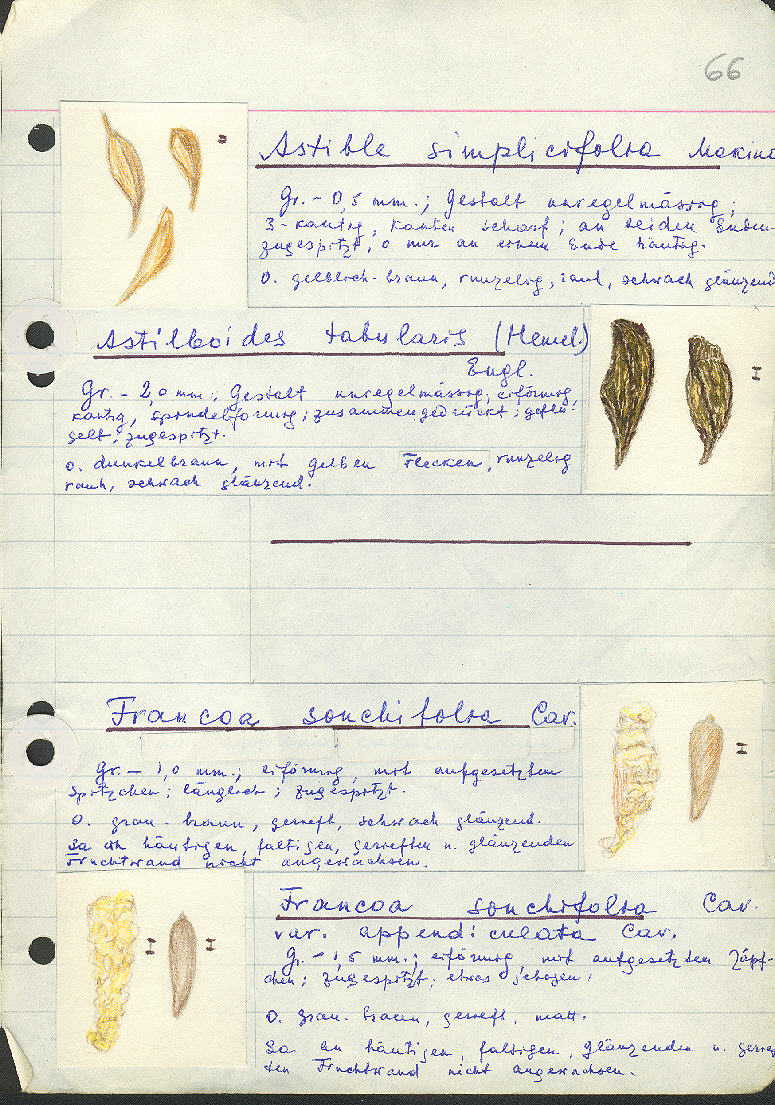 66
Astible simplicifolia Makino
Gr. - 0,5 mm.; Gestalt unregelmässig;
3-kantig, Kanten scharf; an beiden Enden
zugespitzt, o nur an einem Ende häutig.
O. gelblich-braun, runzelig, rauh, schwach glänzend
Astilboides tabularis (Hemsl.)
Engl.
Gr. - 2,0 mm.; Gestalt unregelmässig; eiförmig,
kantig, spindelförmig; zusammengedrückt; geflü-
gelt; zugespitzt.
O. dunkelbraun, mit gelben Flecken, runzelig
rauh, schwach glänzend.
Francoa sonchifolia Cav.
Gr. - 1,0 mm.; eiförmig, mit aufgesetztem
Spitzchen; länglich; zugespitzt.
O. grau-braun, gerieft, schwach glänzend.
Sa an häutigen, faltigen, gerieften u. glänzenden
Fruchtwand nicht angewachsen.
Francoa sonchifolia Cav.
var. appendiculata Cav.
Gr. - 1,5 mm.; eiförmig, mit aufgesetztem Zäpf-
chen; zugespitzt; etwas gebogen;
O. grau-braun, gerieft, matt.
Sa an häutigen, faltigen, glänzenden u. gerief
ten Fruchtwand nicht angewachsen.